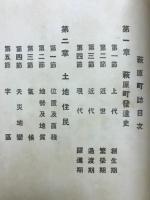 萩原町誌目次
第一章 萩原町發達史
第一節 上代 創生期
第二節 近世 繁榮期
第三節 近代 過渡期
第四節 現代 躍進期
第二章 土地住民
第一節 位置及面積
第二節 地勢及地質
第三節 氣候
第四節 天災地變
第五節 字區